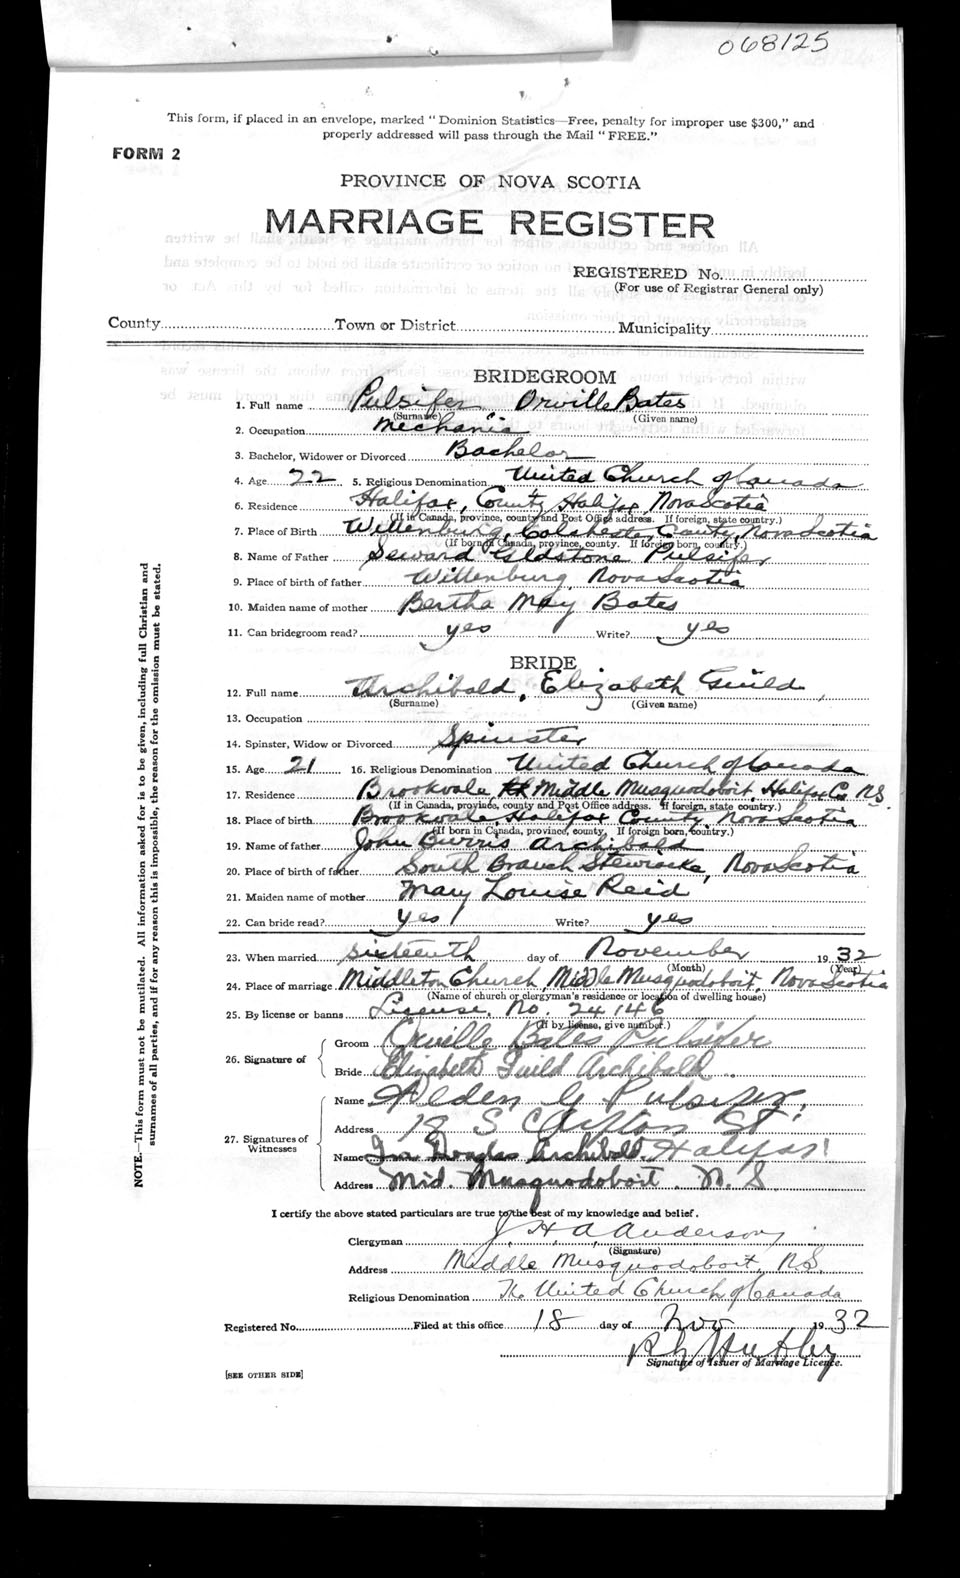 068125
This form, if placed in an envelope, marked "Dominion Statistics—Free, penalty for improper use $300," and
properly addressed will pass through the Mail "FREE."
FORM 2
PROVINCE OF NOVA SCOTIA
MARRIAGE REGISTER
REGISTERED No.
(For use of Registrar General only)
County Town or District Municipality
BRIDEGROOM
1. Full name Pulsifer, Orville Bates
(Surname) (Given name)
2. Occupation Mechanic
3. Bachelor, Widower or Divorced Bachelor
4. Age 22 5. Religious Denomination United Church of Canada
6. Residence Halifax, County Halifax Nova Scotia
(If in Canada, province, county and Post Office address. If foreign, state country.)
7. Place of Birth Wittenburg, Colchester County, Nova Scotia
(If born in Canada, province, county. If foreign born, country.)
8. Name of Father Seward Gladstone Pulsifer
9. Place of birth of father Wittenburg, Nova Scotia
10. Maiden name of mother Bertha May Bates
11. Can bridegroom read? yes Write? yes
BRIDE
12. Full name Archibald, Elizabeth Guild
(Surname) (Given name)
13. Occupation
14. Spinster, Widow or Divorced Spinster
15. Age 21 16. Religious Denomination United Church of Canada
17. Residence Brookvale Middle Musquodoboit, Halifax Co. N.S.
(If in Canada, province, county and Post Office address. If foreign, state country.)
18. Place of birth Brookvale, Halifax County, Nova Scotia
(If born in Canada, province, county. If foreign born, country.)
19. Name of father John Burris Archibald
20. Place of birth of father South Branch Stewiacke, Nova Scotia
21. Maiden name of mother Mary Louise Reid
22. Can bride read? yes Write? yes
23. When married sixteenth day of November 1932
(Month) (Year)
24. Place of marriage Middleton Church, Middle Musquodoboit, Nova Scotia
(Name of church or clergyman's residence or location of dwelling house)
25. By license or banns License. No. 24146
(If by license, give number.)
26. Signature of Groom Orville Bates Pulsifer
Bride Elizabeth Guild Archibald
27. Signatures of Witnesses
Name Alden G Pulsifer,
Address 78 S Clifton St
Name Douglas Archibald Halifax
Address Mid. Musquodoboit. N. S
I certify the above stated particulars are true to the best of my knowledge and belief.
Clergyman J. H. A. Anderson
(Signature)
Address Middle Musquodoboit, N.S.
Religious Denomination The United Church of Canada
Registered No. Filed at this office 18 day of Nov 1932
Signature of Issuer of Marriage Licence.
[SEE OTHER SIDE]
NOTE.—This form must not be mutilated. All information asked for is to be given, including full Christian and
surnames of all parties, and if for any reason this is impossible, the reason for the omission must be stated.